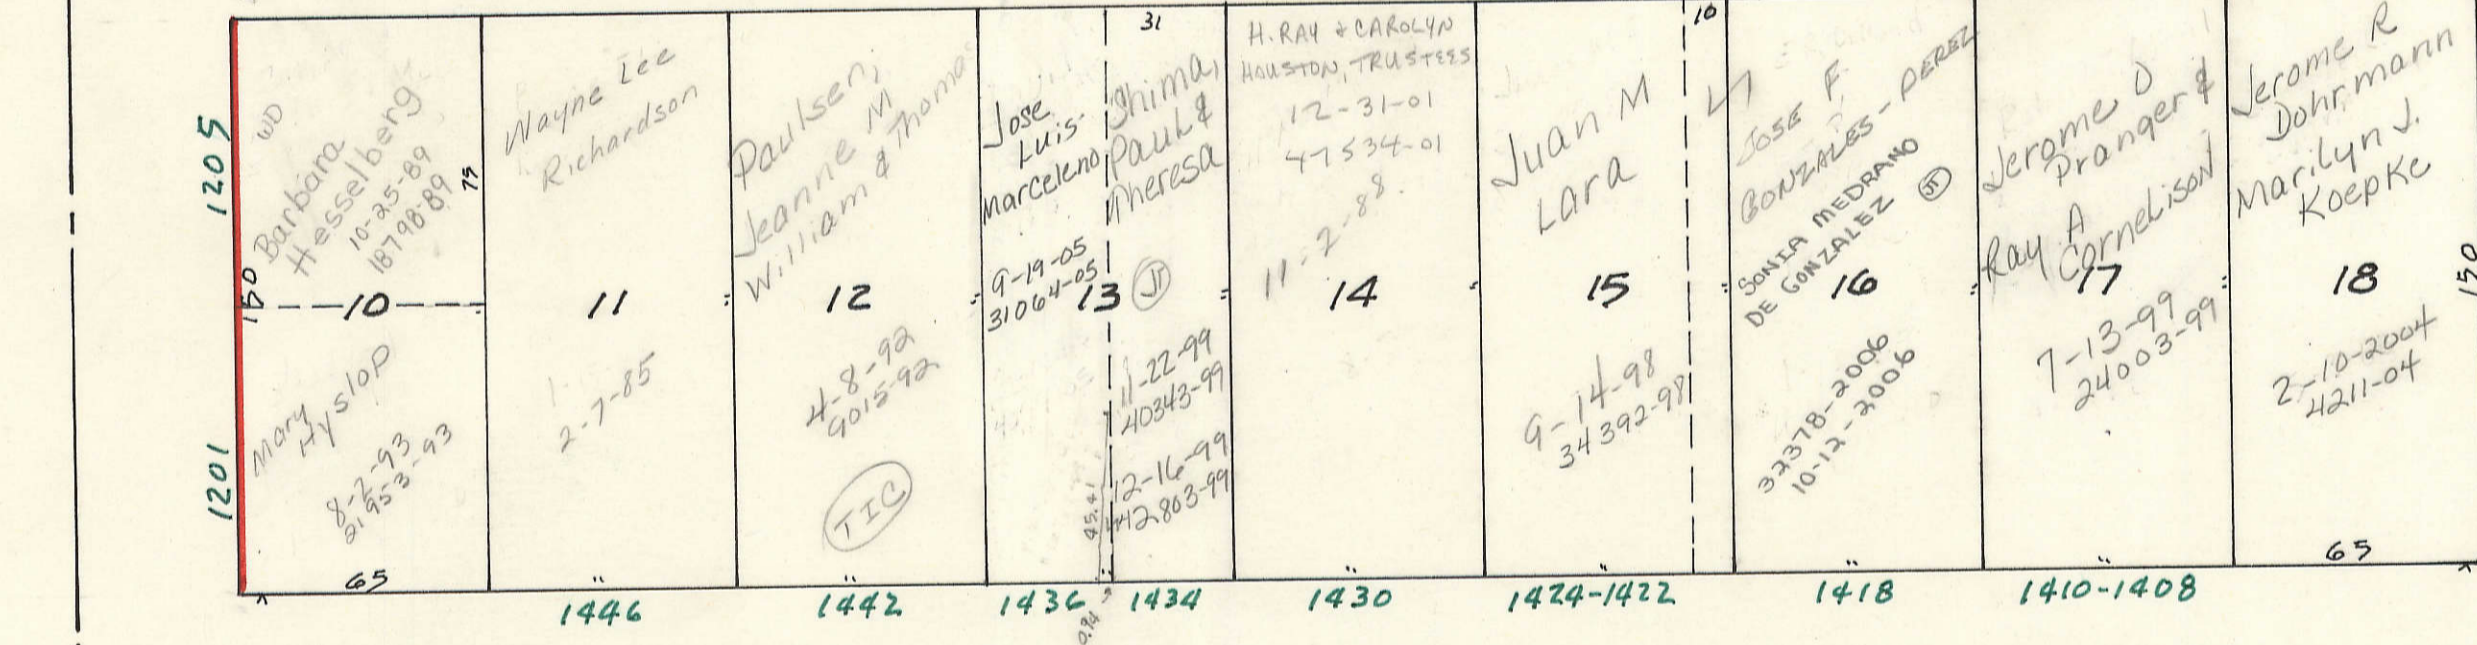 1205
1201
WD
Barbara
Hesselberg
10-25-89
18798-89
75
150
10
Mary
Hyslop
8-2-93
21953-93
65
Wayne Lee
Richardson
11
2-7-85
1446
Paulsen,
Jeanne M
William & Thomas
12
4-8-92
9015-92
TIC
1442
Jose
Luis
Marceleno
9-19-05
31064-05
13
JT
1436
31
Shima,
Paul &
Theresa
11-22-99
40343-99
12-16-99
442803-99
45.41
0.94
1434
H. RAY & CAROLYN
HOUSTON, TRUSTEES
12-31-01
47534-01
11-2-88
14
1430
Juan M
Lara
15
9-14-98
34392-98
1424-1422
10
JOSE F
GONZALES-PEREZ
SONIA MEDRANO
DE GONZALEZ
JT
16
32378-2006
10-12-2006
1418
Jerome D
Pranger &
Ray A
Cornelison
17
7-13-99
24003-99
1410-1408
Jerome R
Dohrmann
Marilyn J.
Koepke
18
150
2-10-2004
4211-04
65